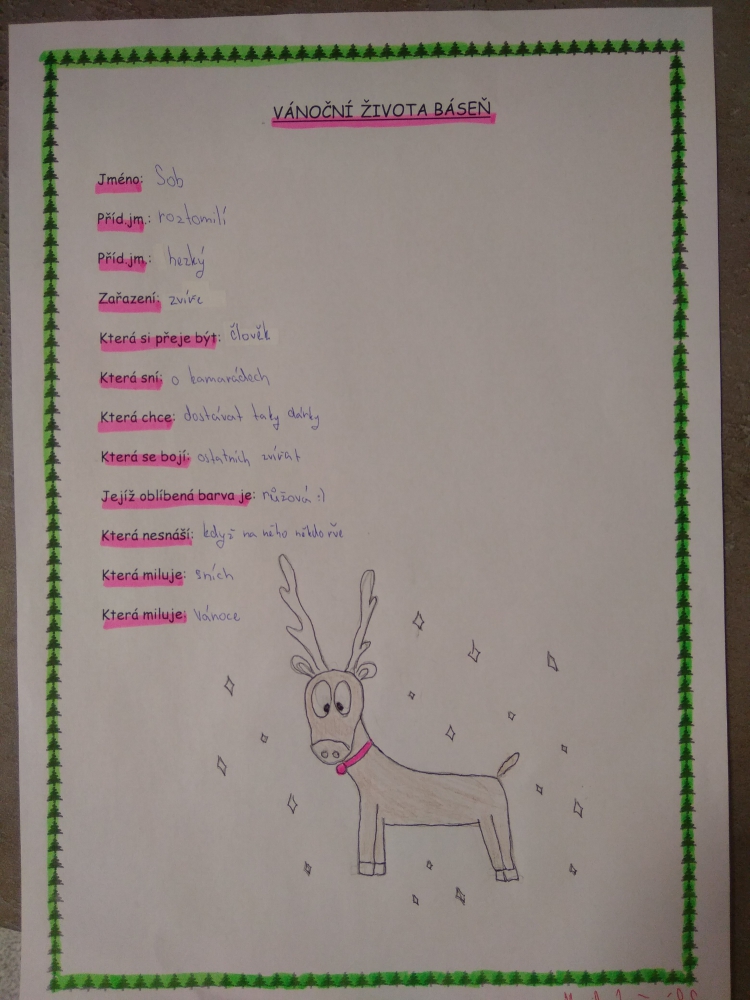 VÁNOČNÍ ŽIVOTA BÁSEŇ
Jméno: Sob
Příd.jm.: roztomilí
Příd.jm.: hezký
Zařazení: zvíře
Která si přeje být: člověk
Která sní: o kamarádech
Která chce: dostávat taky dárky
Která se bojí: ostatních zvířat
Jejíž oblíbená barva je: růžová :)
Která nesnáší: když na něho někdo řve
Která miluje: sníh
Která miluje: Vánoce